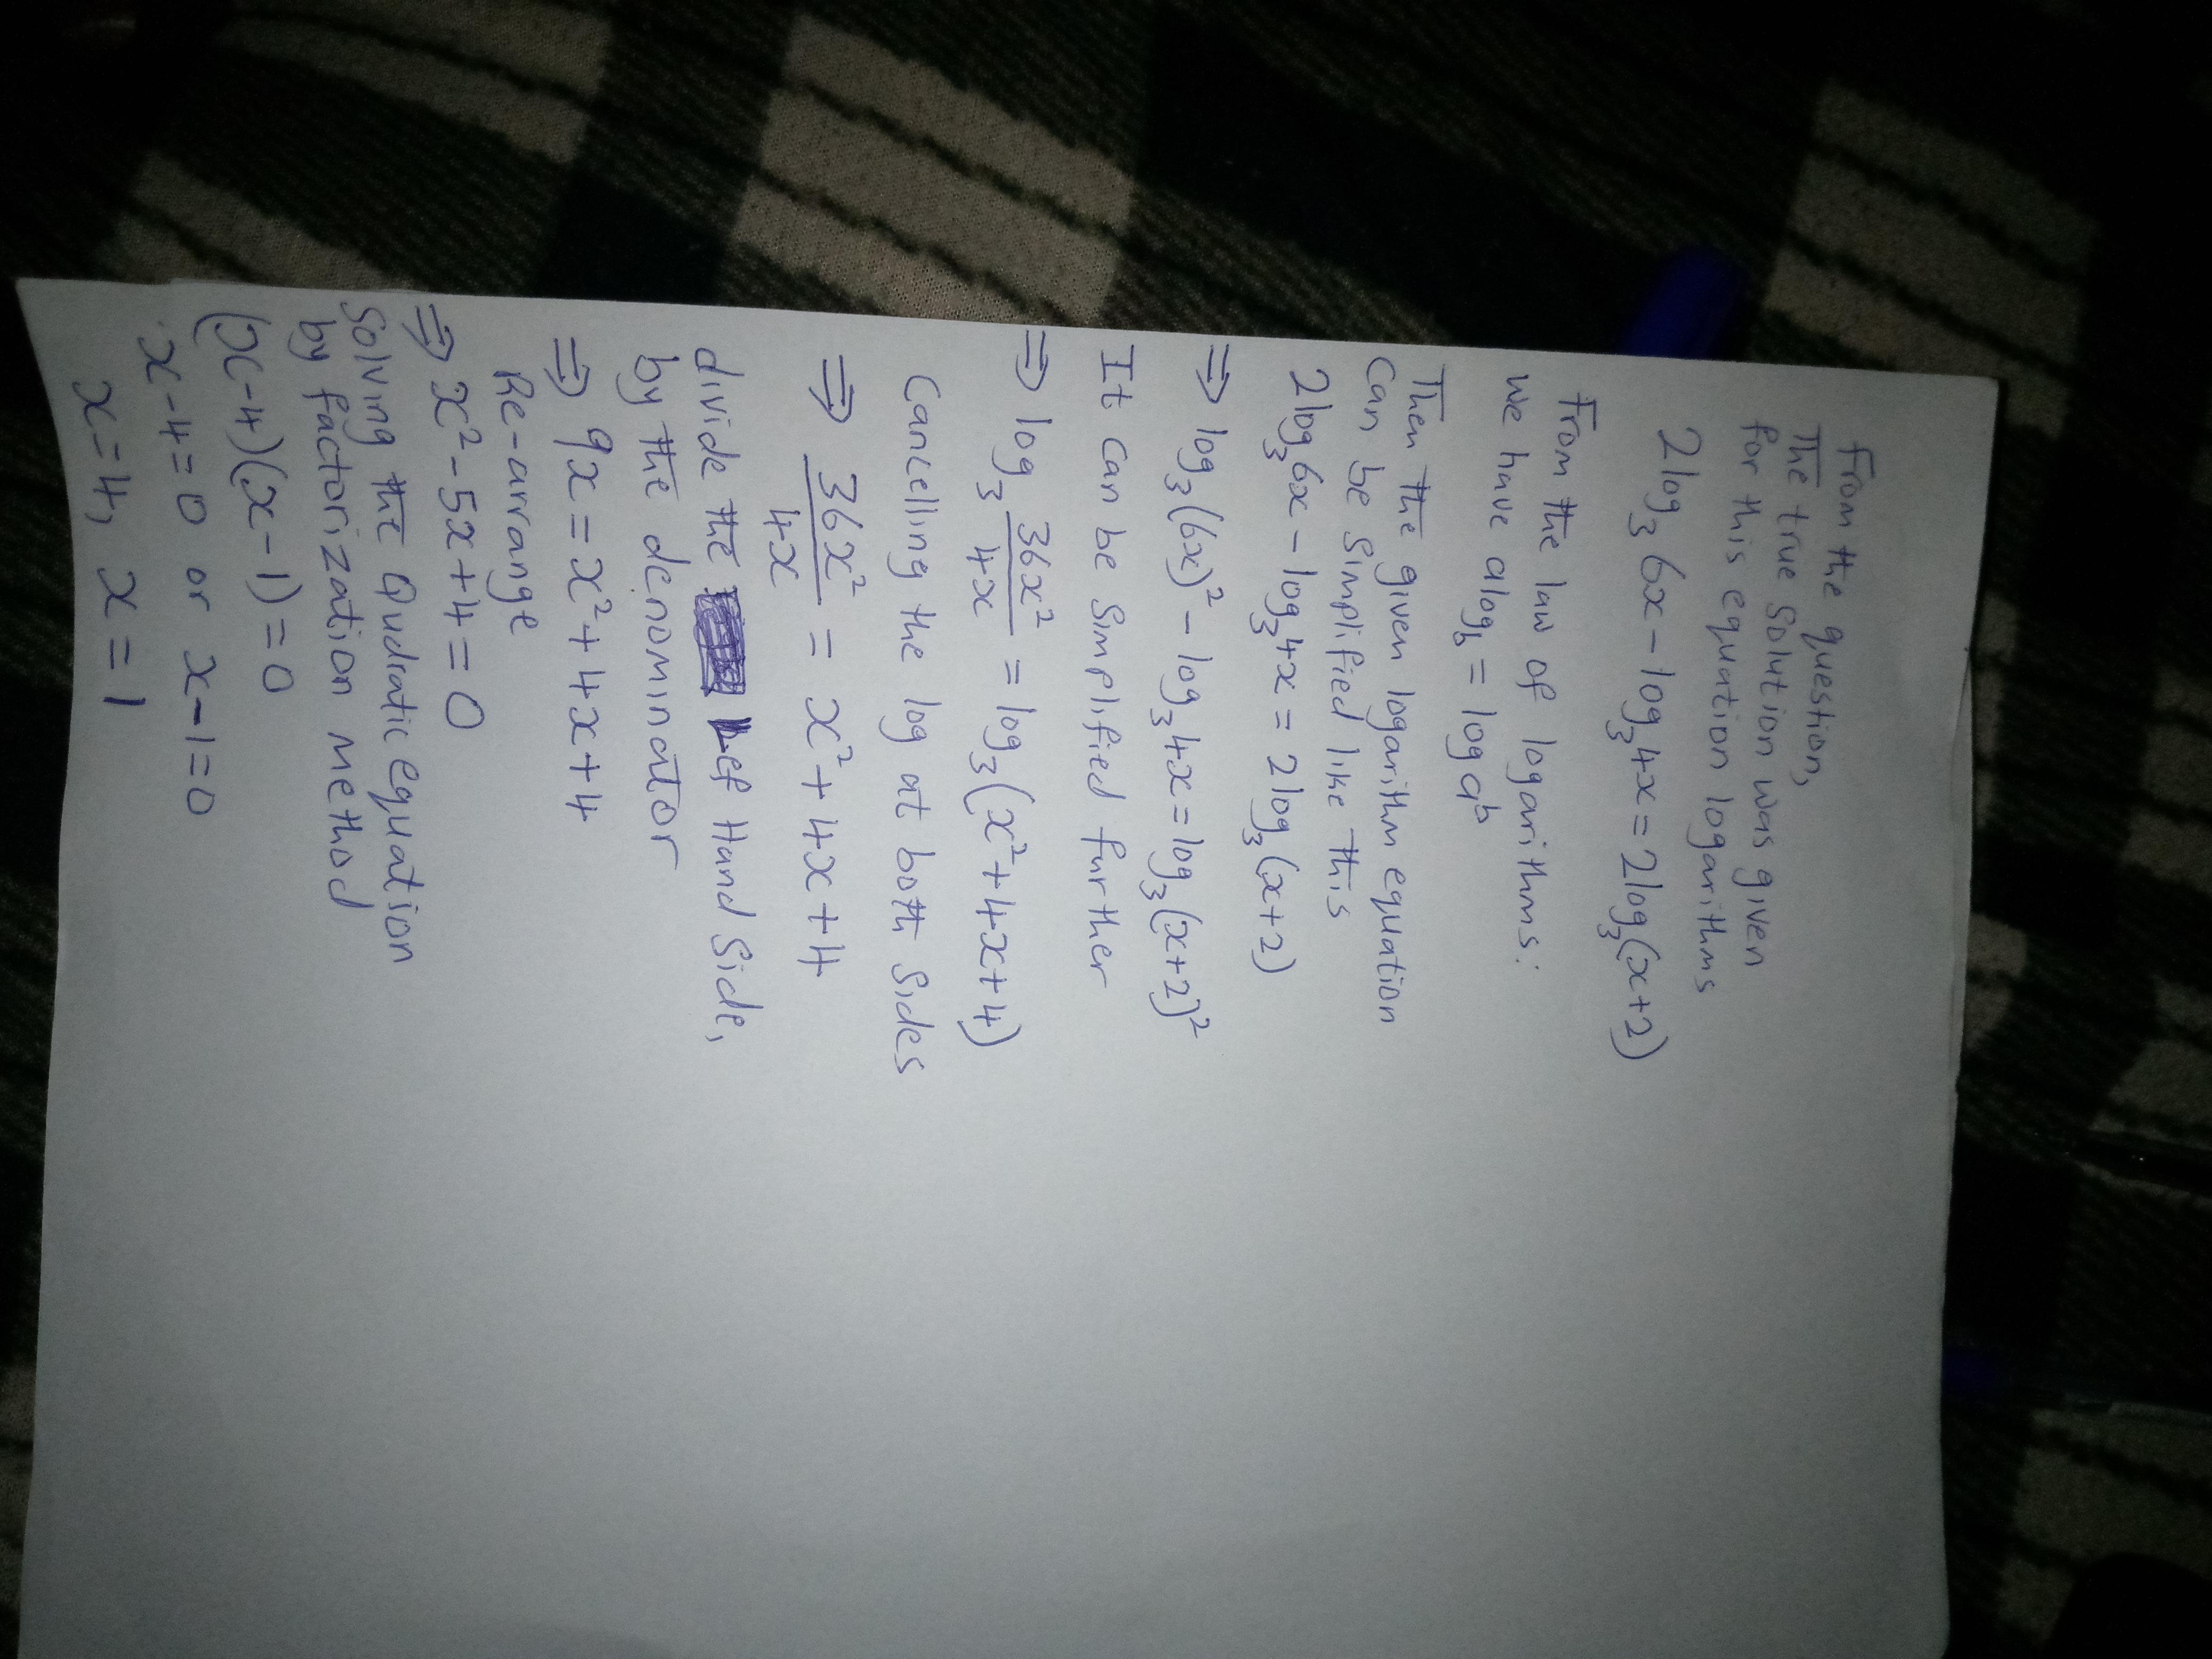 From the question,
The true solution was given
for this equation logarithms
2log₃6x − log₃4x = 2log₃(x+2)
From the law of logarithms:
we have alog_b = log a^b
Then the given logarithm equation
Can be Simplified like this
2log₃6x − log₃4x = 2log₃(x+2)
⇒ log₃(6x)² − log₃4x = log₃(x+2)²
It can be Simplified further
⇒ log₃ 36x²/4x = log₃(x²+4x+4)
Cancelling the log at both Sides
⇒ 36x²/4x = x²+4x+4
divide the Left Hand Side,
by the denominator
⇒ 9x = x²+4x+4
Re-arrange
⇒ x²-5x+4=0
Solving the Qudratic equation
by factorization method
(x-4)(x-1)=0
x-4=0 or x-1=0
x=4, x=1